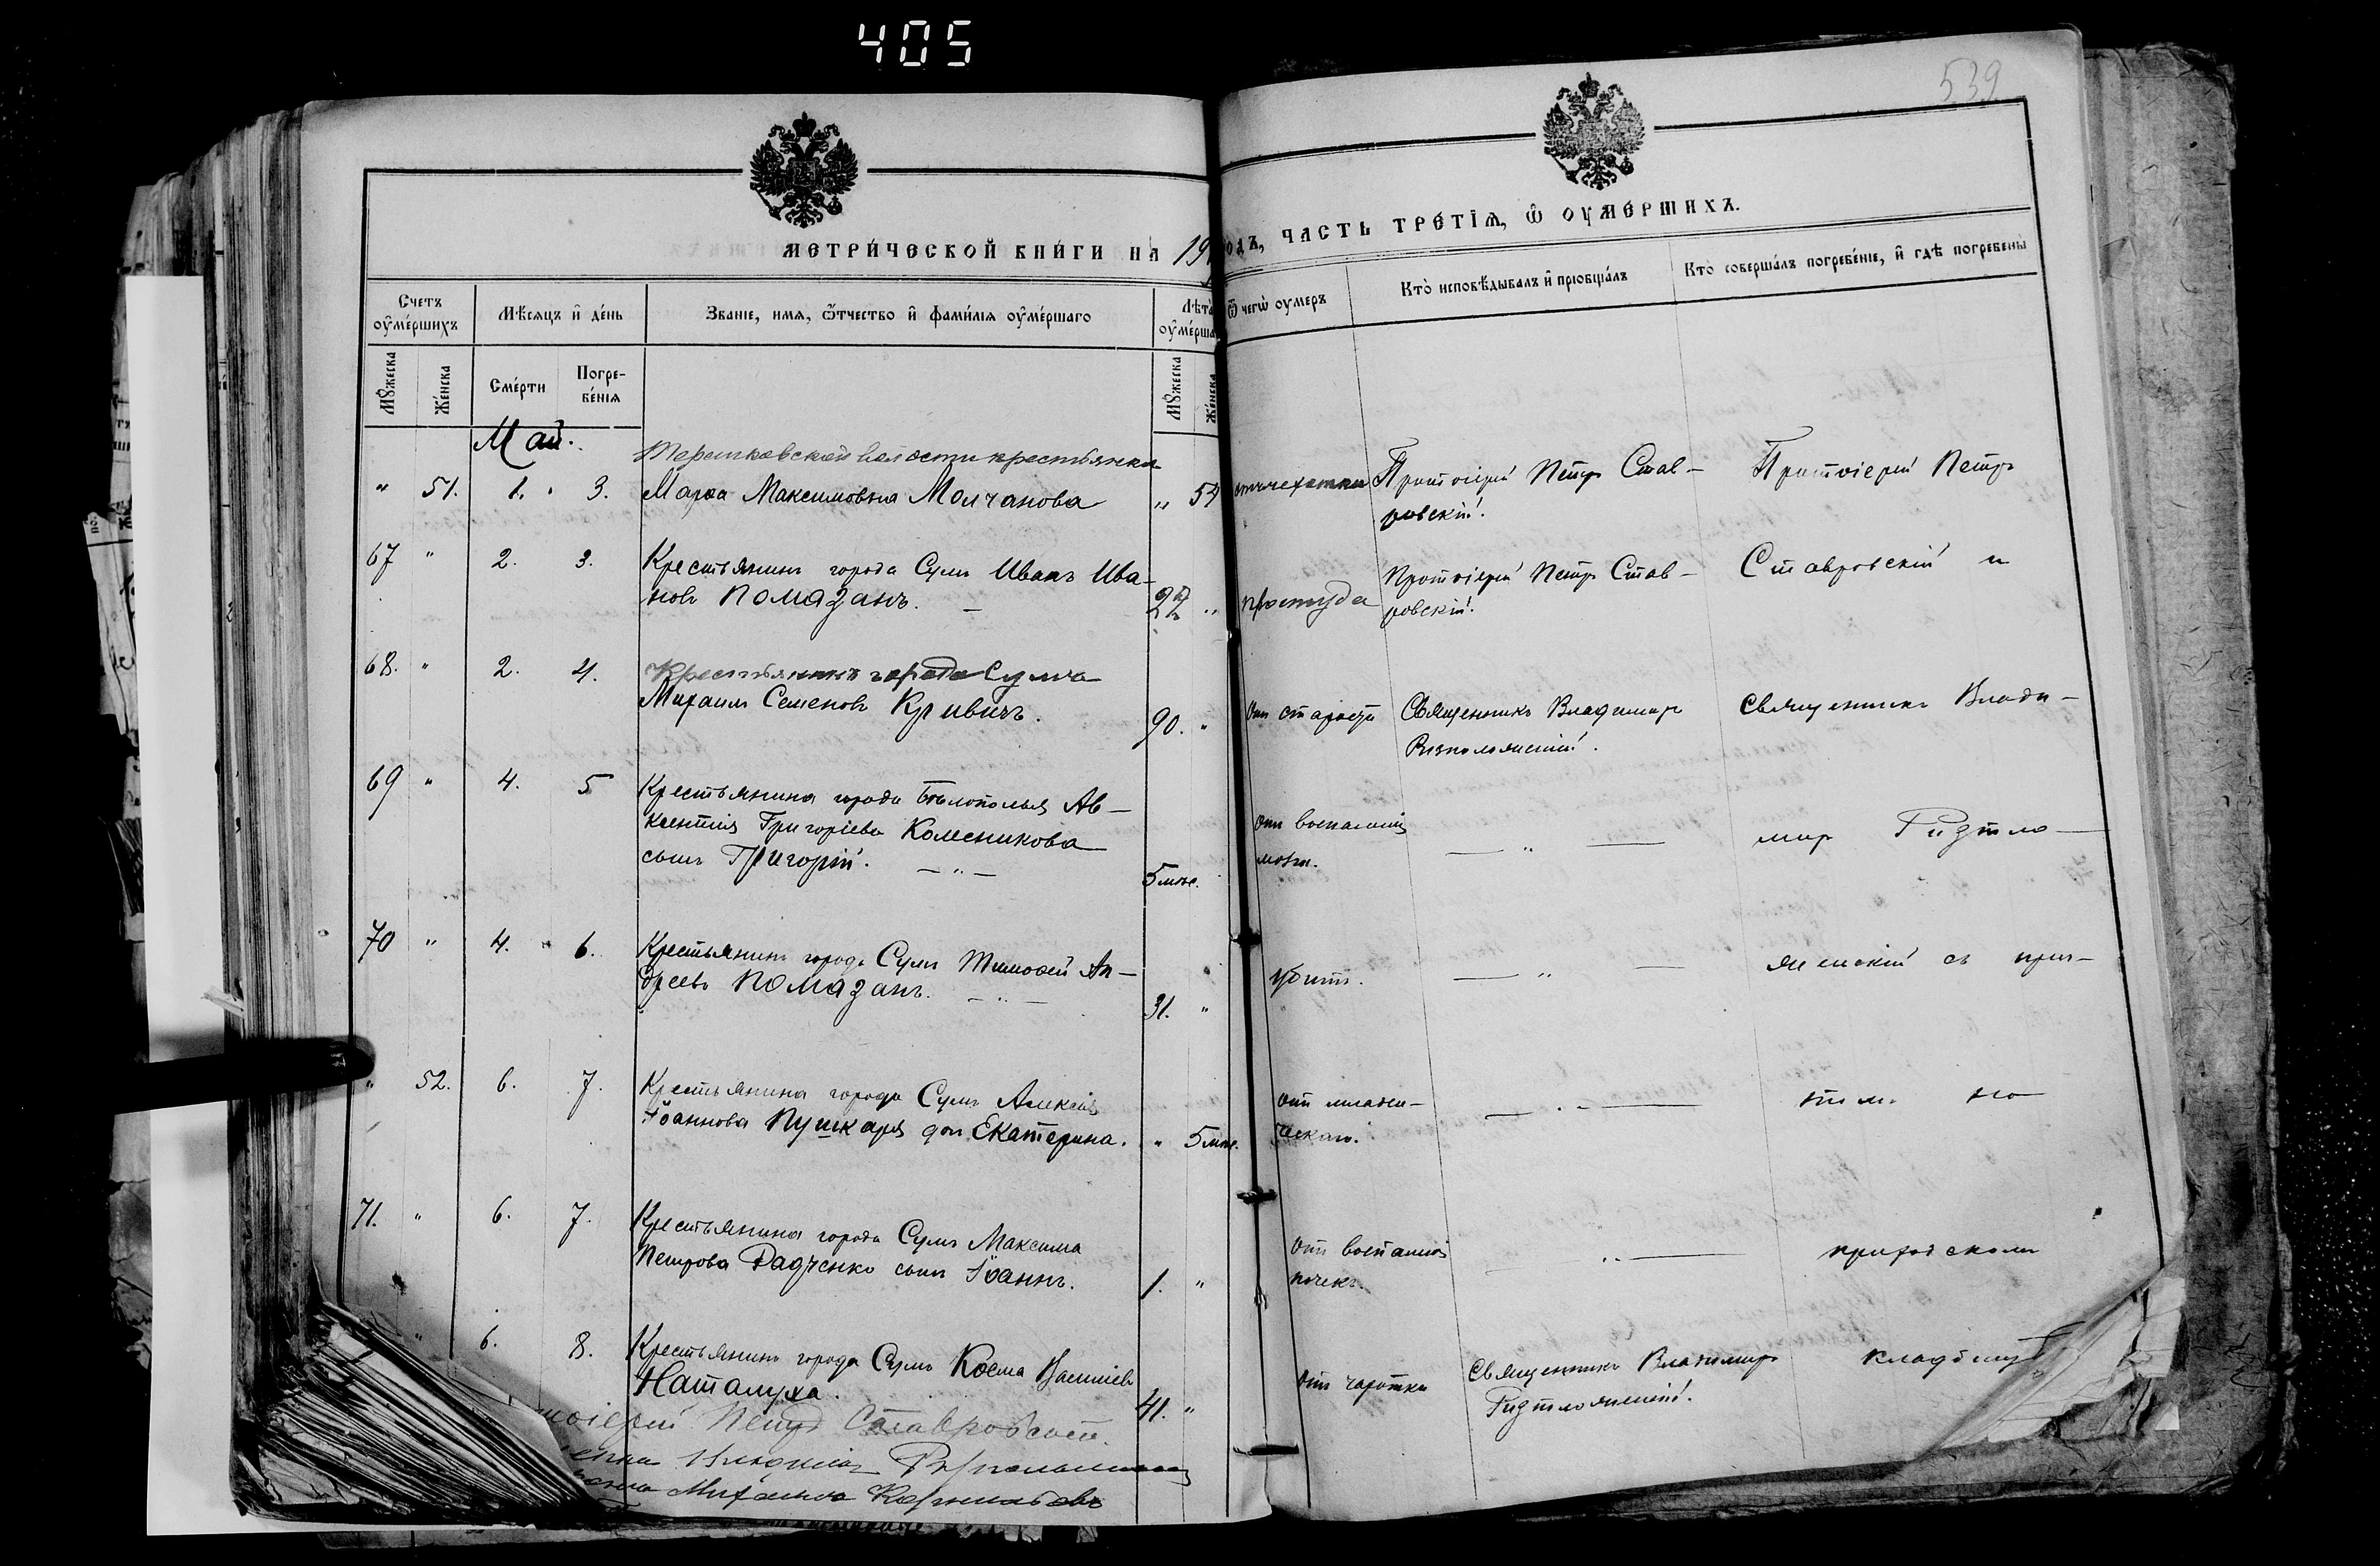 405
539
МЕТРИЧЕСКОЙ КНИГИ НА 19
ОДЪ, ЧАСТЬ ТРЕТІѦ, Ѿ ОУМЕРШИХЪ.
Счетъ оумершихъ
Мѣсяцъ и день
Званіе, имя, ѿтчество и фамилія оумершаго
Лѣта
оумерша
Ѿ чегѡ оумеръ
Кто исповѣдывалъ и пріобщалъ
Кто совершалъ погребеніе, и гдѣ погребены
Мужеска
Женска
Смерти
Погре-
бенія
Мужеска
Женска
Май.
Терешковской волости крестьянка
" 51. 1. 3. Марѳа Максимовна Молчанова " 54 отъ чехотки Протоіерей Петръ Став-
ровскій.
Протоіерей Петръ
67 " 2. 3. Крестьянинъ города Сумъ Иванъ Ива-
новъ Помазанъ. 22 " простуда
Протоіерей Петръ Став-
ровскій.
Ставровскій и
68. " 2. 4. Крестьянинъ города Сумъ
Михаилъ Семеновъ 90. " отъ старости
Священникъ Владимиръ
Ризположенскій.
Священникъ Влади-
69 " 4. 5 Крестьянина города Бѣлополья Ав-
ксентія Григоріева Колесникова
сынъ Григорій. 5 мѣс.
отъ воспаленія
мозга.
— " —
миръ Ризпло-
70 " 4. 6. Крестьянинъ города Сумъ Тимоѳей Ан-
дреевъ Помазанъ. 31. "
убитъ.
— " —
женскій съ прич-
" 52. 6. 7. Крестьянина города Сумъ Алексія
Іоаннова Пушкаря доч Екатерина. " 5 мѣс.
отъ младен-
ческаго.
— " —
томъ на
71. " 6. 7. Крестьянина города Сумъ Максима
Петрова Радченко сынъ Іоаннъ. 1. "
отъ воспаленія
почекъ.
" —
приходскомъ
" 6. 8. Крестьянинъ города Сумъ Косма Васильевъ
Наталуха. 41. "
отъ чахотки
Священникъ Владимиръ
Ризположенскій.
кладбищѣ
тоіерей Петръ Ставровскій.
Михаилъ Корнильевъ